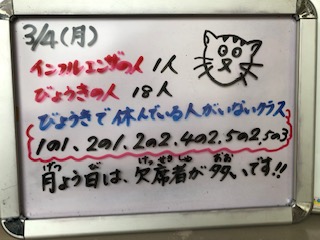 3/4(月)
インフルエンザの人 1人
びょうきの人 18人
びょうきで休んでいる人がいないクラス
1の1、2の1、2の2、4の2、5の2、5の3
月よう日は、欠席者が多いです!!